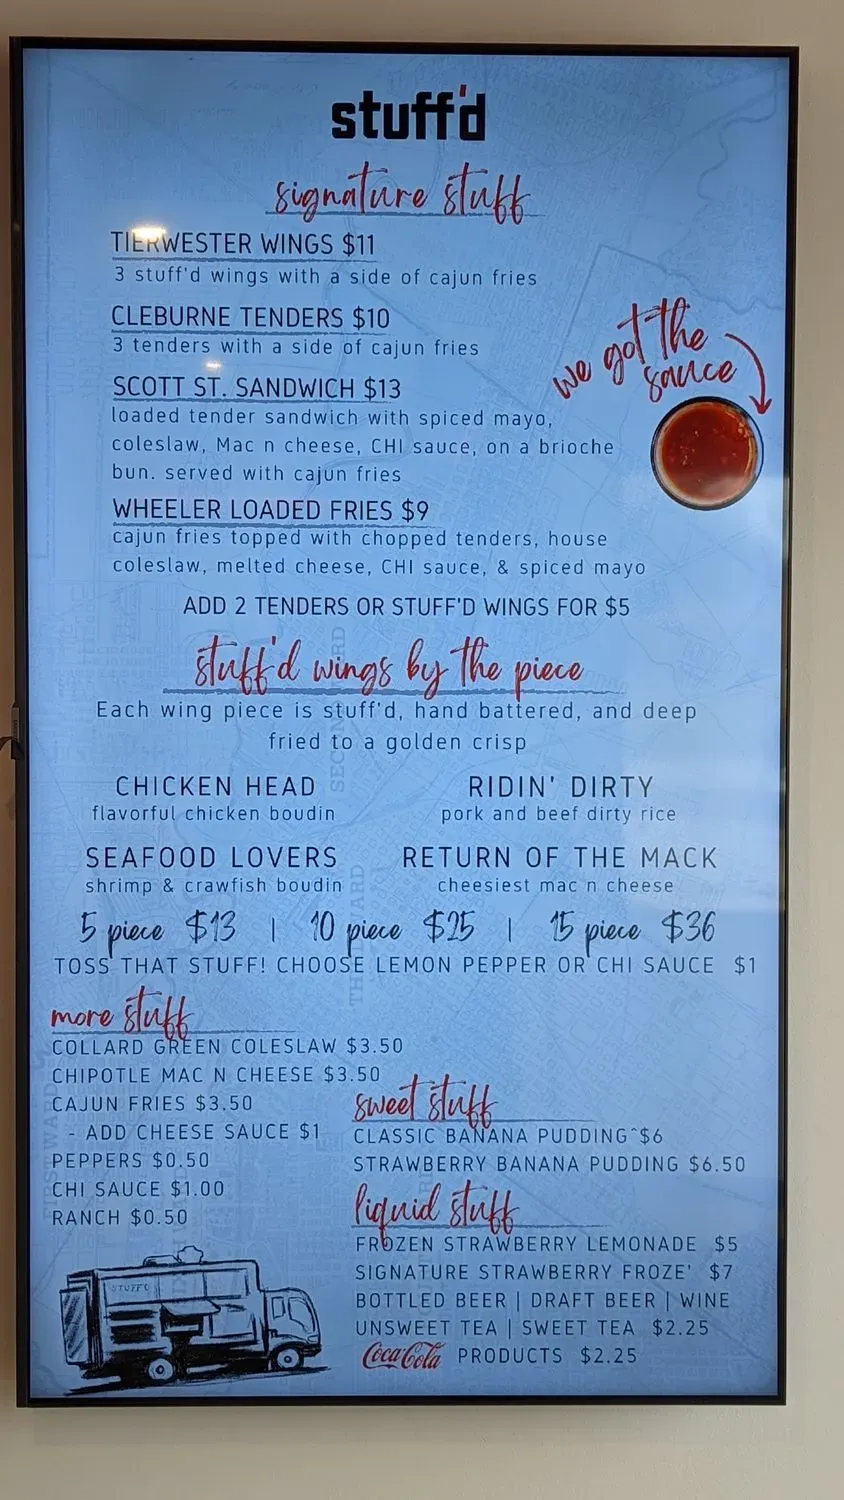 stuff'd
signature stuff
TIERWESTER WINGS $11
3 stuff'd wings with a side of cajun fries
CLEBURNE TENDERS $10
3 tenders with a side of cajun fries
we got the
sauce
SCOTT ST. SANDWICH $13
loaded tender sandwich with spiced mayo,
coleslaw, Mac n cheese, CHI sauce, on a brioche
bun. served with cajun fries
WHEELER LOADED FRIES $9
cajun fries topped with chopped tenders, house
coleslaw, melted cheese, CHI sauce, & spiced mayo
ADD 2 TENDERS OR STUFF'D WINGS FOR $5
stuff'd wings by the piece
Each wing piece is stuff'd, hand battered, and deep
fried to a golden crisp
CHICKEN HEAD
flavorful chicken boudin
RIDIN' DIRTY
pork and beef dirty rice
SEAFOOD LOVERS
shrimp & crawfish boudin
RETURN OF THE MACK
cheesiest mac n cheese
5 piece $13 | 10 piece $25 | 15 piece $36
TOSS THAT STUFF! CHOOSE LEMON PEPPER OR CHI SAUCE $1
more stuff
COLLARD GREEN COLESLAW $3.50
CHIPOTLE MAC N CHEESE $3.50
CAJUN FRIES $3.50
- ADD CHEESE SAUCE $1
PEPPERS $0.50
CHI SAUCE $1.00
RANCH $0.50
sweet stuff
CLASSIC BANANA PUDDING^$6
STRAWBERRY BANANA PUDDING $6.50
liquid stuff
FROZEN STRAWBERRY LEMONADE $5
SIGNATURE STRAWBERRY FROZE' $7
BOTTLED BEER | DRAFT BEER | WINE
UNSWEET TEA | SWEET TEA $2.25
Coca Cola PRODUCTS $2.25
STUFF'D